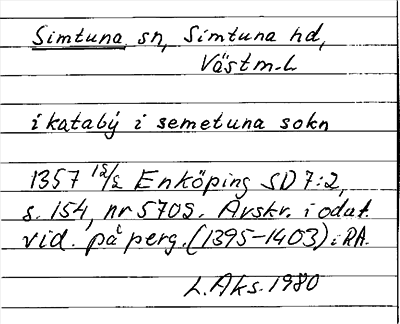 Simtuna sn, Simtuna hd,
Västm.L
i katabÿ i semetuna sokn
1357 12/2 Enköping SD 7:2,
s. 154, nr 5709. Avskr. i odat.
vid. på perg. (1395-1403) i RA.
L. Aks. 1980